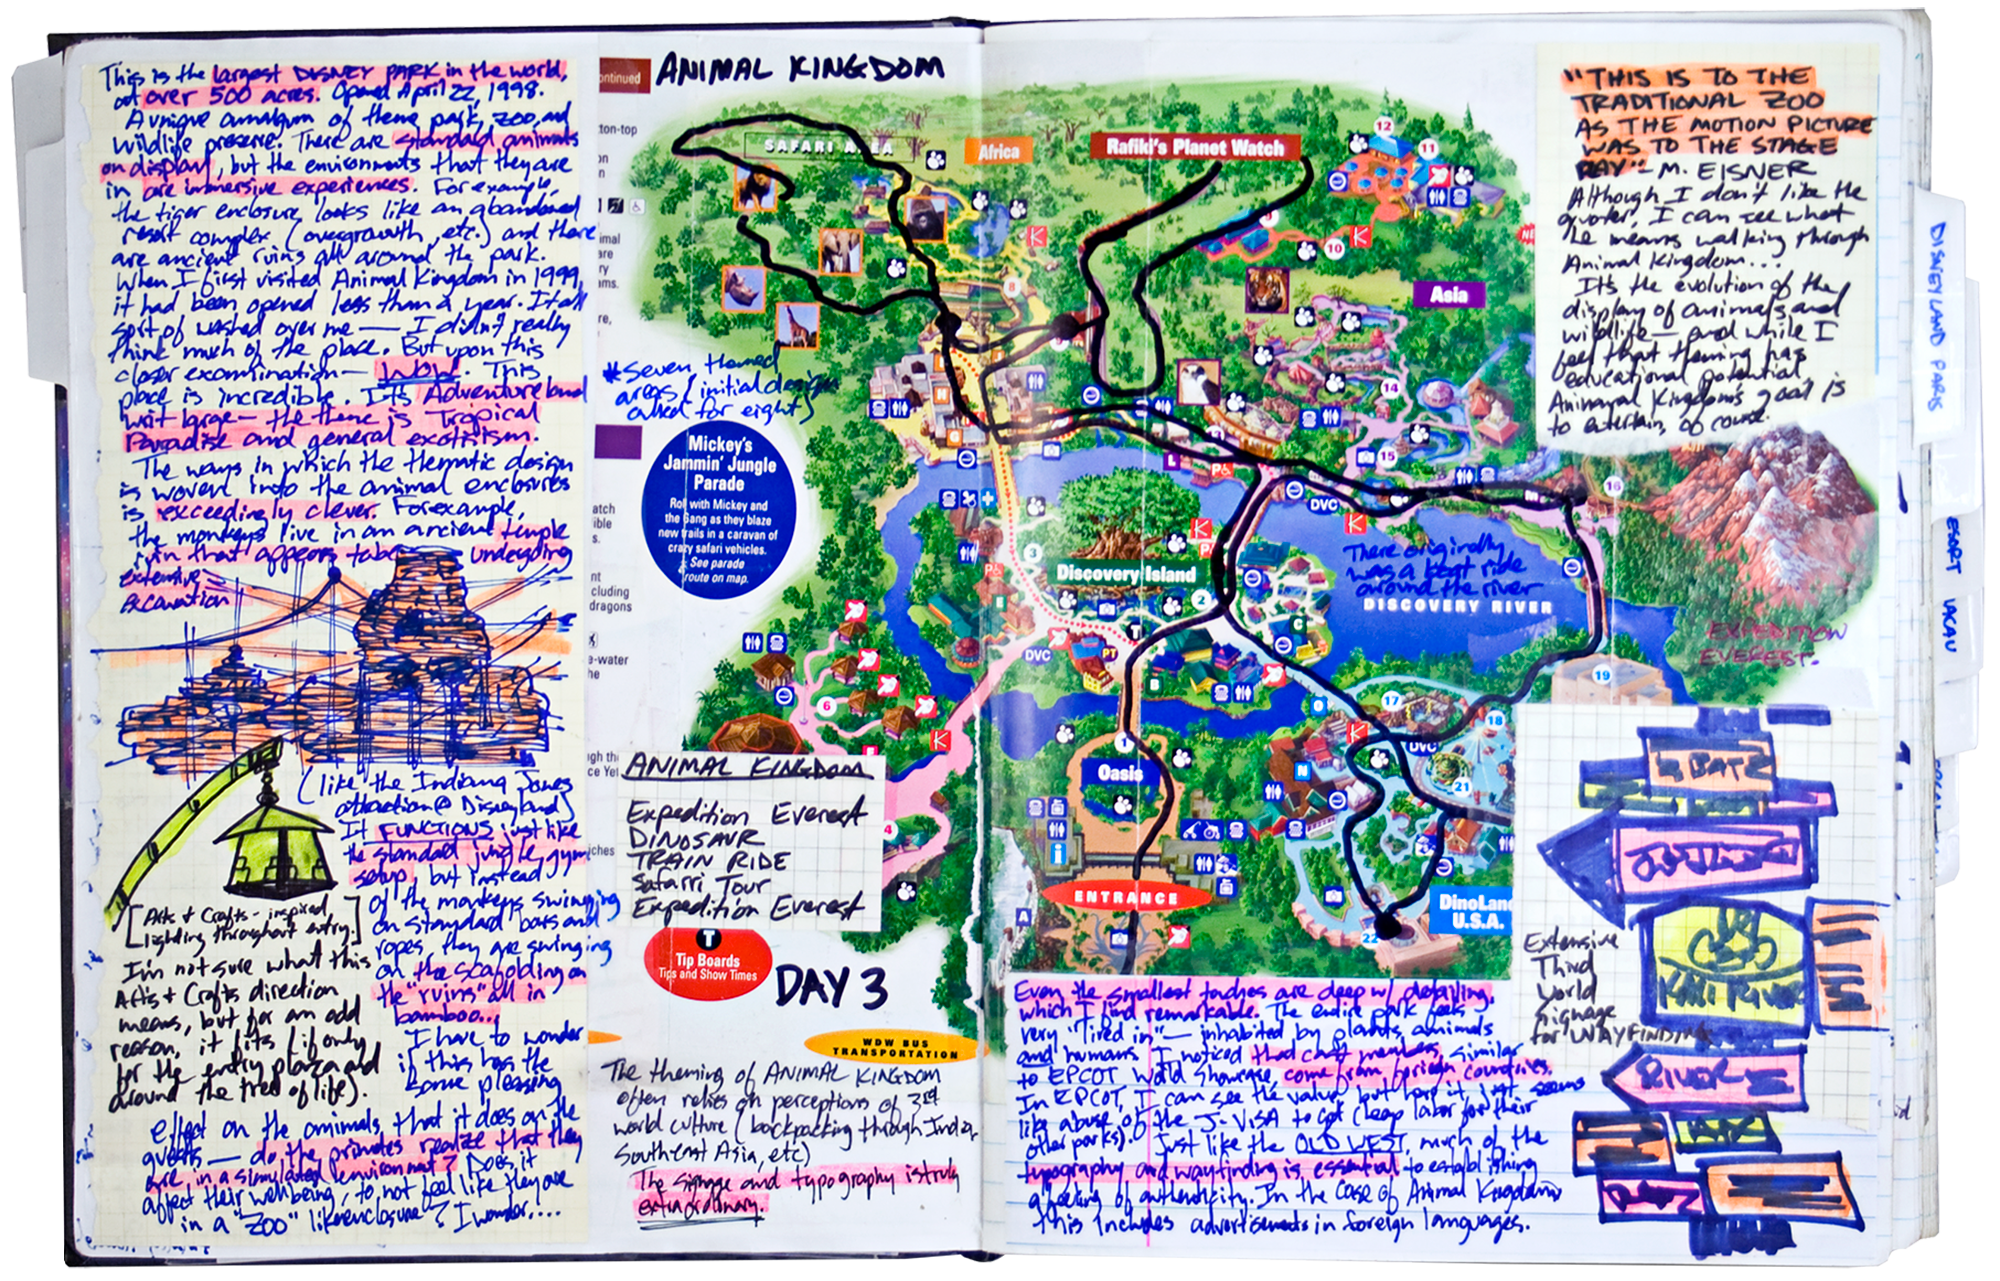 This is the largest DISNEY PARK in the world,
at over 500 acres. Opened April 22, 1998.
A unique amalgum of theme park, zoo, and
wildlife preserve. There are standard animals
on display, but the environments that they are
in are immersive experiences. For example,
the tiger enclosure looks like an abandoned
resort complex (overgrowth, etc.) and there
are ancient ruins all around the park.
When I first visited Animal Kingdom in 1999,
it had been opened less than a year. It all
sort of washed over me — I didn't really
think much of the place. But upon this
closer examination — WOW. This
place is incredible. It's Adventureland
writ large — the theme is Tropical
Paradise and general exoticism.
The ways in which the thematic design
is woven into the animal enclosures
is exceedingly clever. For example,
the monkeys live in an ancient temple
ruin that appears to be undergoing
extensive
excavation
(like the Indiana Jones
attraction @ Disneyland)
It FUNCTIONS just like
the standard jungle gym
setup, but instead
of the monkeys swinging
on standard bars and
ropes, they are swinging
on the scafolding on
the "ruins" all in
bamboo...
[Arts & Crafts - inspired
lighting throughout entry.]
I'm not sure what this
Arts & Crafts direction
means, but for an odd
reason, it fits (if only
for the entry plaza and
around the tree of life).
I have to wonder
if this has the
same pleasing
effect on the animals, that it does on the
guests — do the primates realize that they
are in a simulated environment? Does it
affect their wellbeing, to not feel like they are
in a "ZOO" like enclosure? I wonder....
ontinued
ANIMAL KINGDOM
SAFARI AREA
Africa
Rafiki's Planet Watch
12
11
10
9
8
Asia
14
15
16
*Seven themed
areas (initial design
called for eight)
Mickey's
Jammin' Jungle
Parade
Roll with Mickey and
the Gang as they blaze
new trails in a caravan of
crazy safari vehicles.
See parade
route on map.
DVC
3
Discovery Island
2
There originally
was a boat ride
around the river
DISCOVERY RIVER
EXPEDITION
EVEREST.
DVC
PT
6
19
17
18
DVC
21
1
Oasis
ENTRANCE
22
DinoLand
U.S.A.
ANIMAL KINGDOM
Expedition Everest
DINOSAUR
TRAIN RIDE
Safarri Tour
Expedition Everest
T
Tip Boards
Tips and Show Times
DAY 3
WDW BUS
TRANSPORTATION
The theming of ANIMAL KINGDOM
often relies on perceptions of 3rd
world culture (backpacking through India,
Southeast Asia, etc)
The signage and typography is truly
extraordinary.
"THIS IS TO THE
TRADITIONAL ZOO
AS THE MOTION PICTURE
WAS TO THE STAGE
PLAY" - M. EISNER
Although I don't like the
quoter, I can see what
he means walking through
Animal Kingdom...
It's the evolution of the
display of animals and
wildlife — and while I
feel that theming has
educational potential
Animal Kingdom's goal is
to entertain, of course.
Even the smallest touches are deep w/ detailing,
which I find remarkable. The entire park feels
very "lived in" — inhabited by plants, animals
and humans. I noticed that cast members, similar
to EPCOT World Showcase, come from foreign countries.
In EPCOT, I can see the value, but here it just seems
like abuse of the J-VISA to get cheap labor for their
other parks).
Just like the OLD WEST, much of the
typography and wayfinding is essential to establishing
a feeling of authenticity. In the case of Animal Kingdom
this includes advertisements in foreign languages.
Extensive
Third
World
Signage
for WAYFINDING
KALI RIVER
RIVER
DISNEYLAND PARIS
ESORT VACAN